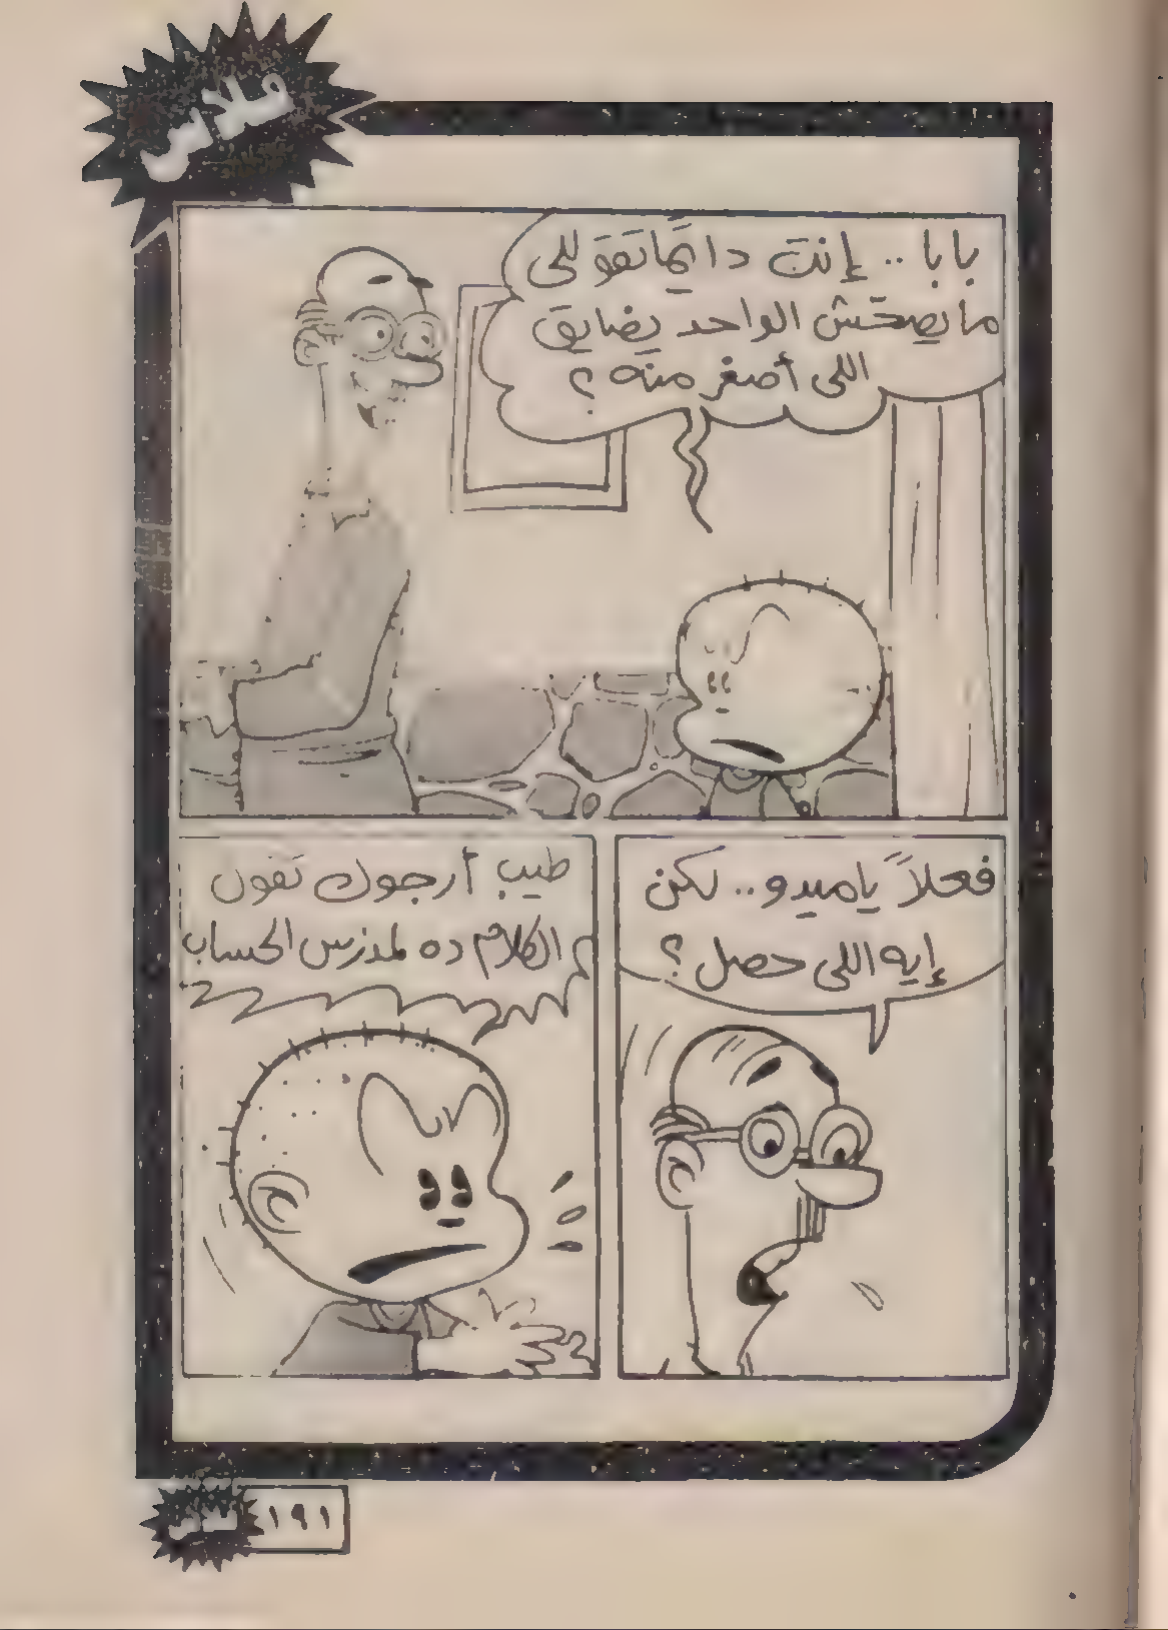 فلاس
بابا .. إنت دايمًا تقوللى
ما يصحّش الواحد يضايق
اللى أصغر منه ؟
فعلاً يا ميدو .. لكن
إيه اللى حصل ؟
طيب أرجوك تقول
الكلام ده لمدرس الحساب
فلاس
١٩١